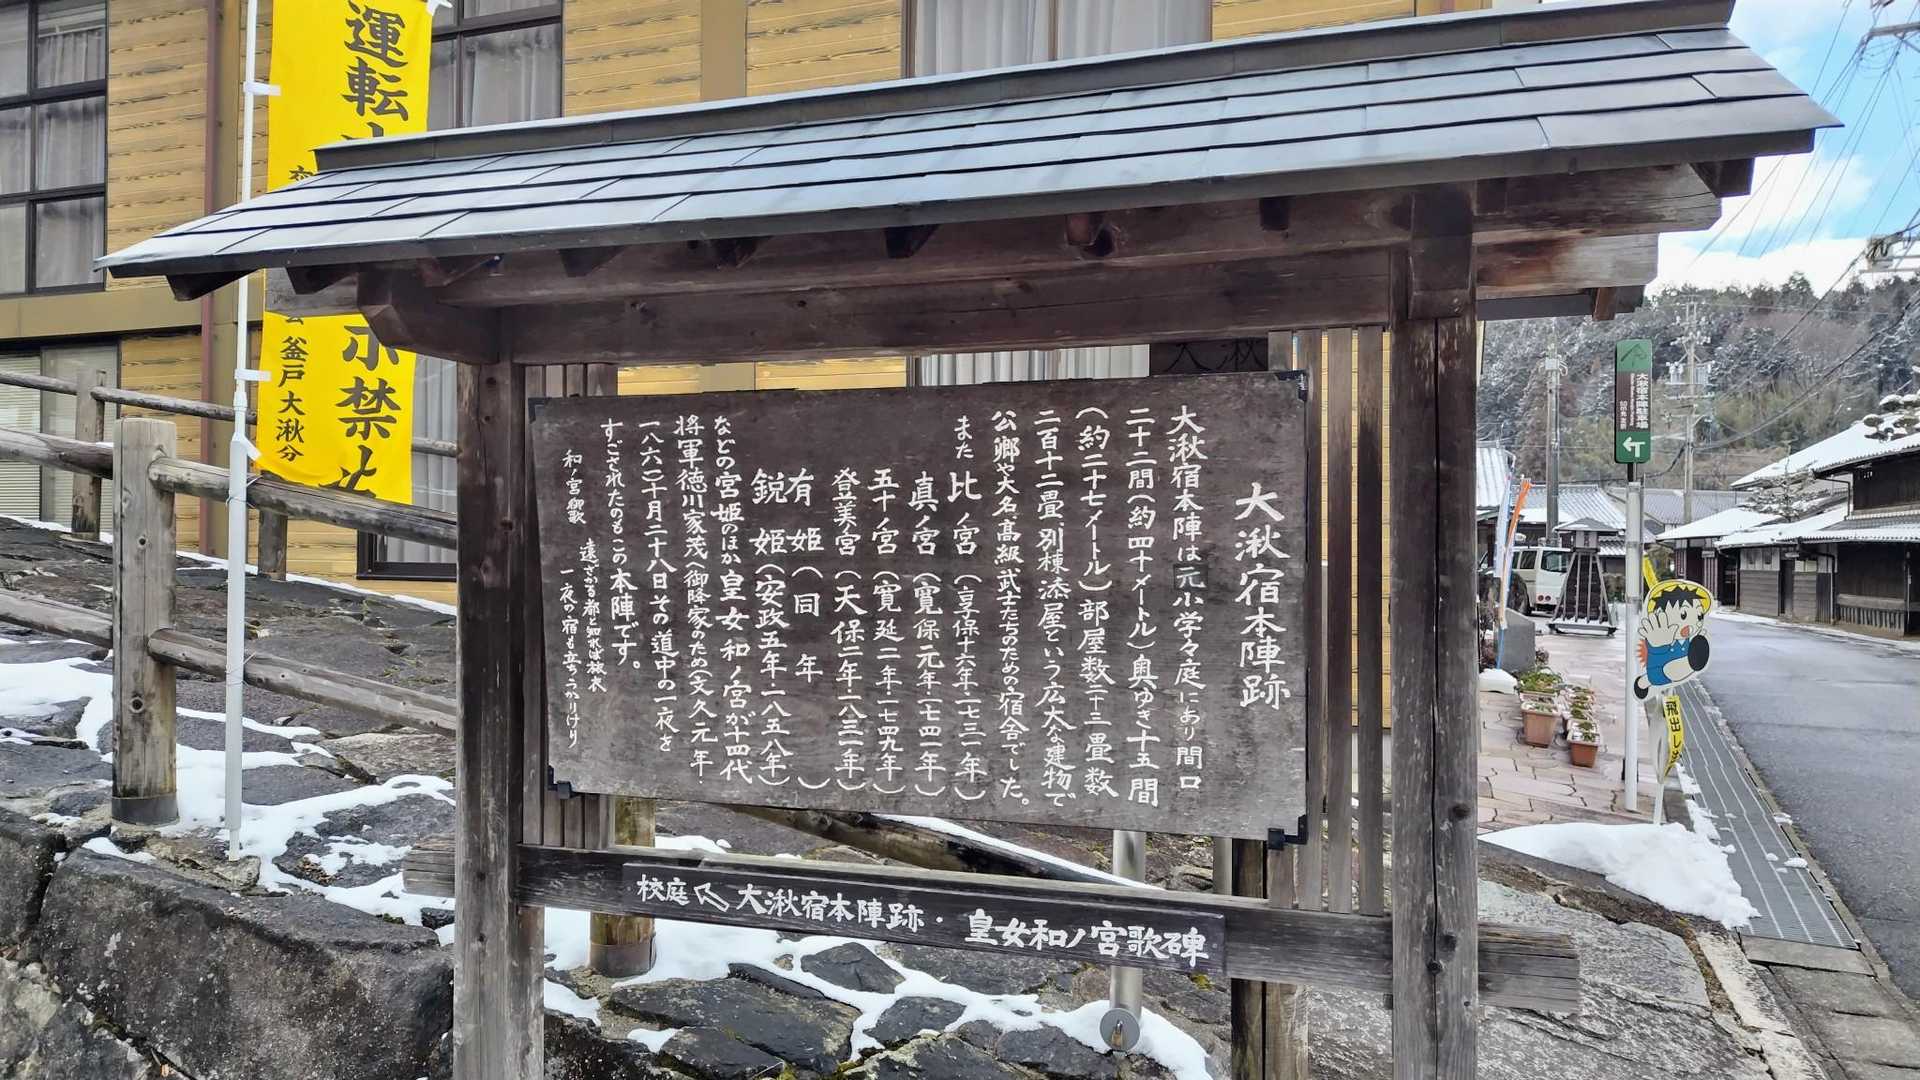 大湫宿本陣跡
大湫宿本陣は元小学々庭にあり間口
二十二間(約四十メートル)奥ゆき十五間
(約二十七メートル)部屋数二十三畳数
二百十二畳別棟添屋という広大な建物で
公卿や大名高級武士たちのための宿舎でした。
また 比ノ宮(享保十六年・一七三一年)
真ノ宮(寛保元年・一七四一年)
五十ノ宮(寛延二年・一七四九年)
登美宮(天保二年・一八三一年)
有姫(同年)
鋭姫(安政五年・一八五八年)
などの宮姫のほか皇女和ノ宮が十四代
将軍徳川家茂(御降家のため(文久元年・
一八六一)十月二十八日その道中の一夜を
すごされたのもこの本陣です。
和ノ宮御歌 遠ざかる都と知れば旅衣
一夜の宿も立ちうかりけり
校庭 大湫宿本陣跡・皇女和ノ宮歌碑
運転
禁止
釜戸大湫分
大湫宿本陣駐車場
飛出し